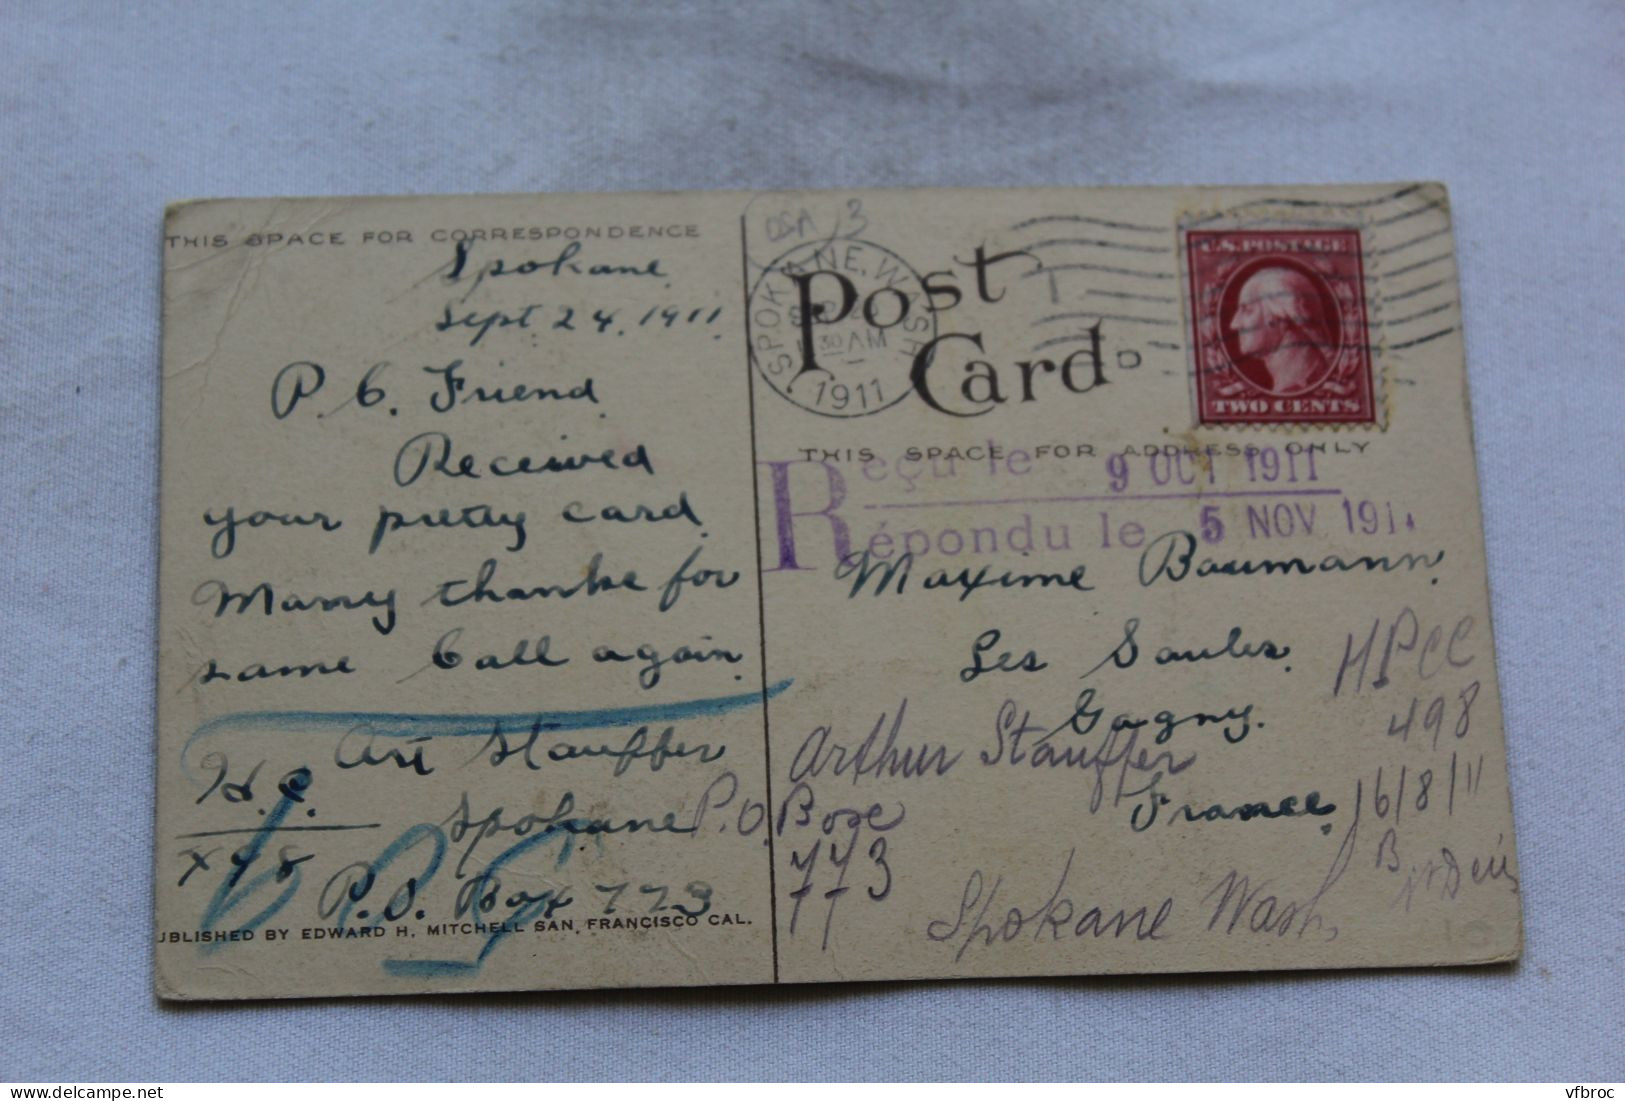 THIS SPACE FOR CORRESPONDENCE
Spokane
Sept. 24, 1911
P. C. Friend
Received
your pretty card
Many thanks for
same Call again.
Art Stauffer
H.C.
Spokane
x 498
P.O. Box 773
UBLISHED BY EDWARD H. MITCHELL SAN, FRANCISCO CAL.
USA 3
SPOKANE, WASH
30 AM
1911
Post
Card
D
U.S. POSTAGE
TWO CENTS
THIS SPACE FOR ADDRESS ONLY
Reçu le 9 OCT 1911
Répondu le 5 NOV 1911
Maxime Baumann
Les Saules.
Gagny.
France.
HPCC
498
16/8/11
B
Arthur Stauffer
P.O Box
773
Spokane Wash.
vfbroc